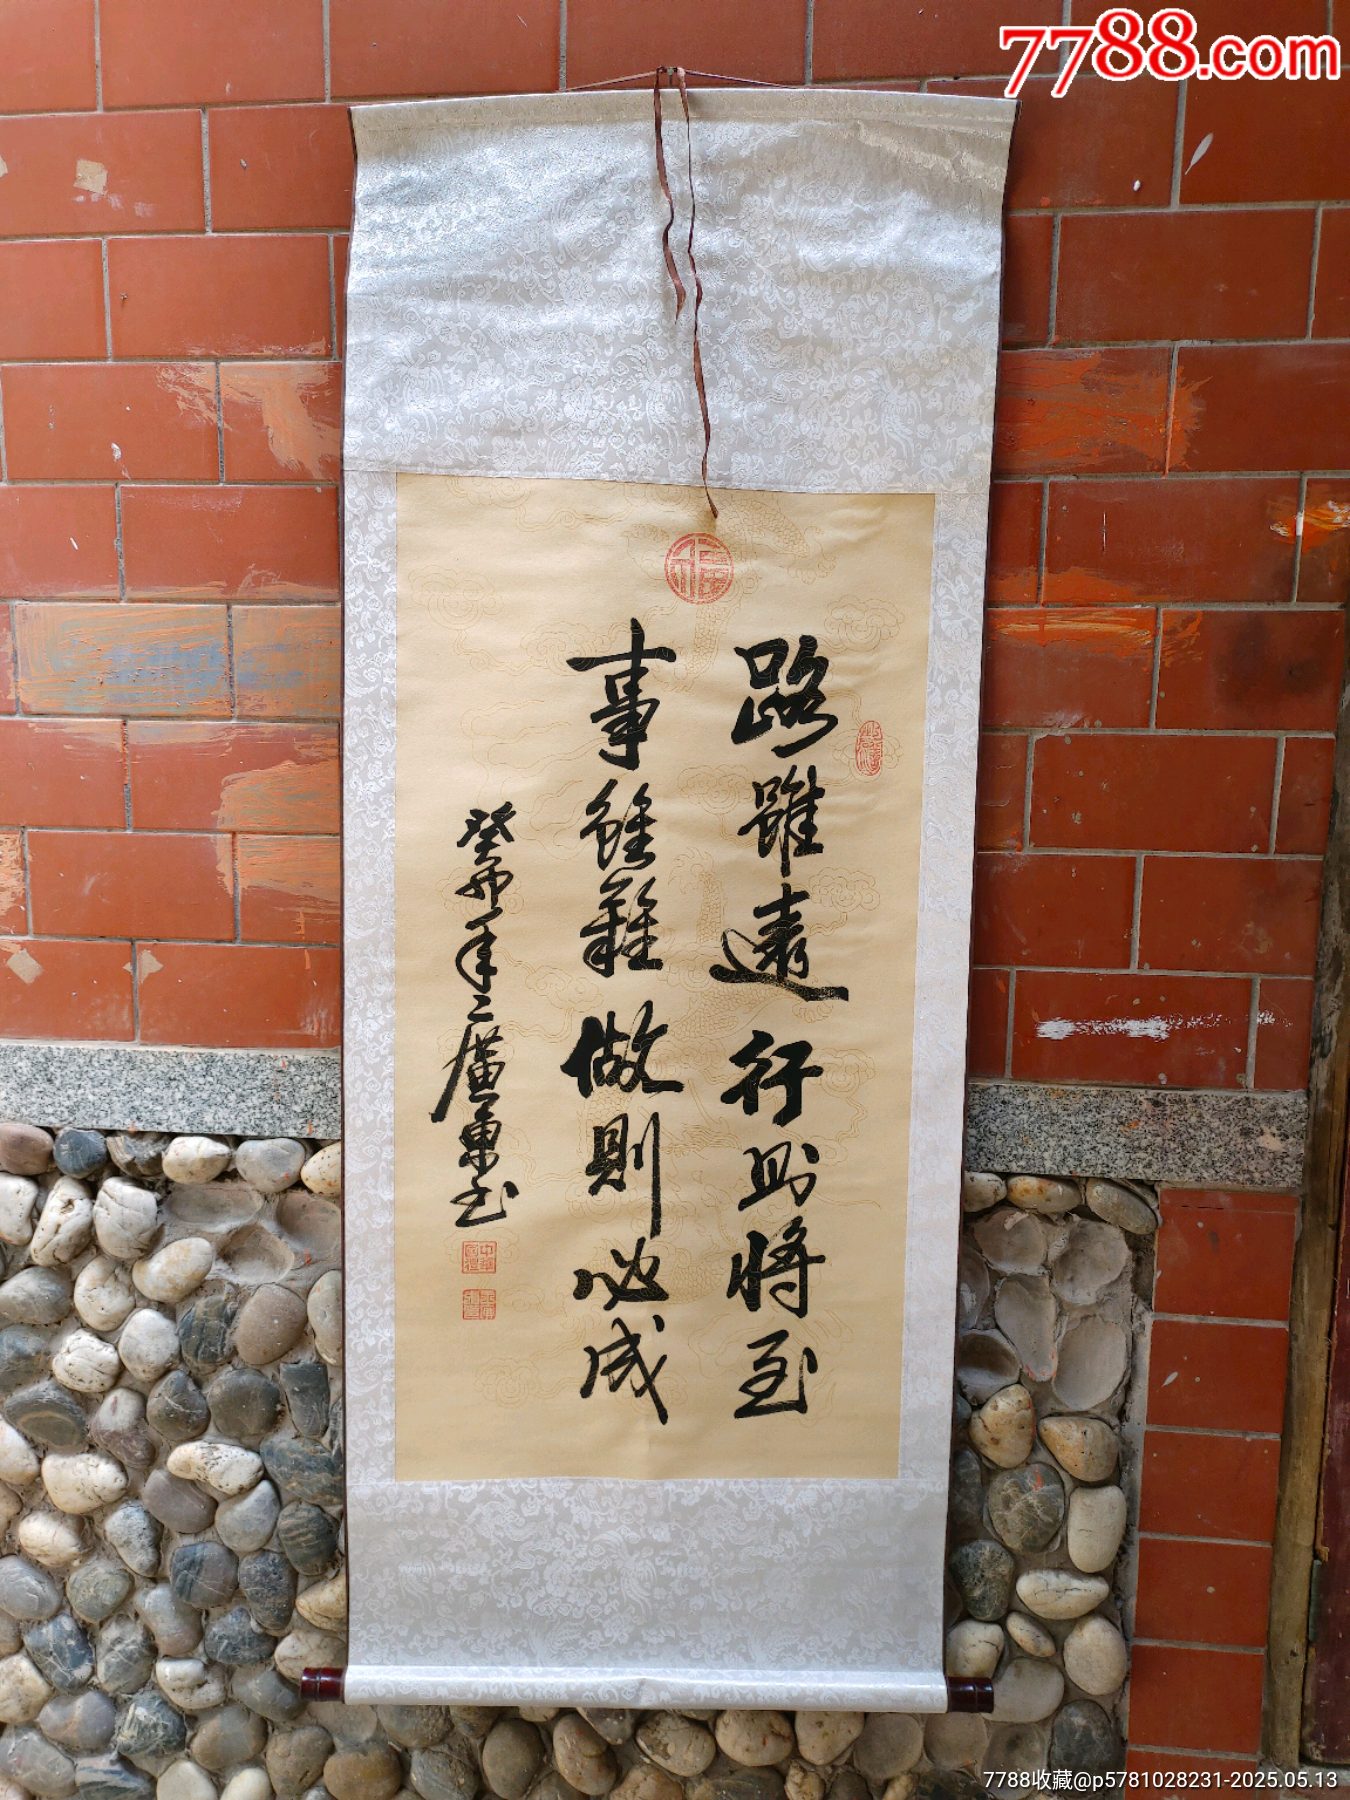 7788.com
福
路雖遠行則將至
事雖難做則必成
癸卯年二廣東
7788收藏@p5781028231-2025.05.13